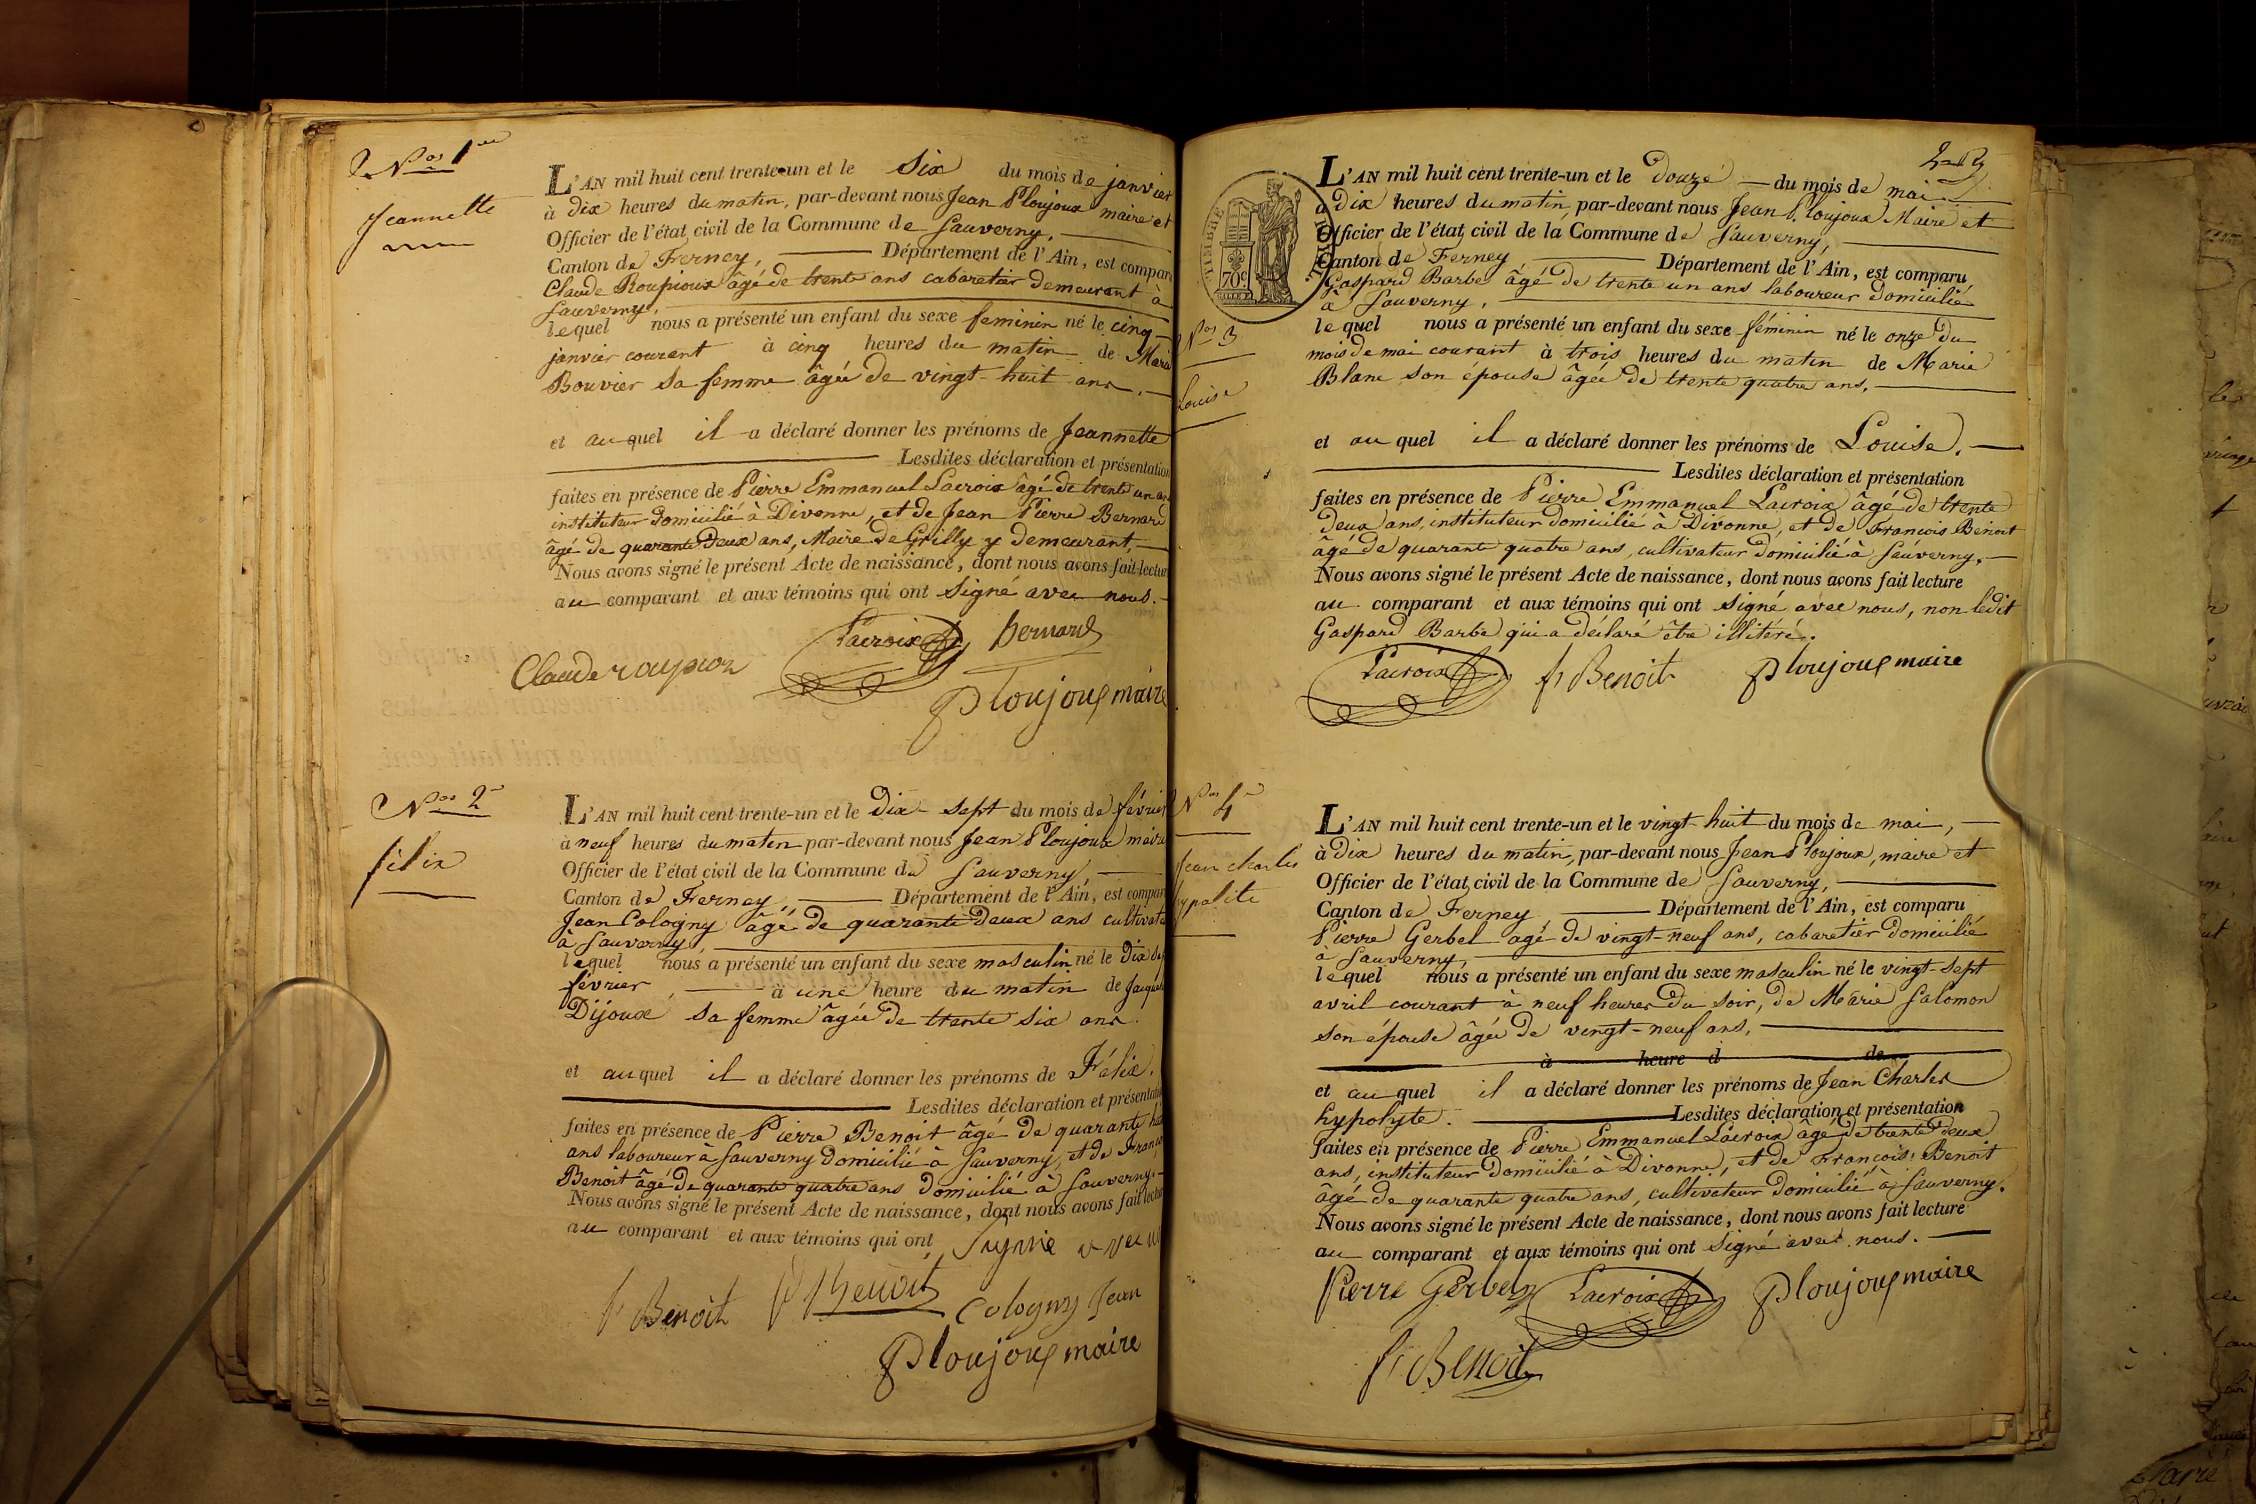 Nos 1er
Jeannette
L'AN mil huit cent trente-un et le six du mois de janvier
à dix heures du matin, par-devant nous Jean Ploujoux maire et
Officier de l'état civil de la Commune de Sauverny,
Canton de Ferney, Département de l'Ain, est compar
Claude Roupioux âgé de trente ans cabaretier demeurant à
Sauverny,
lequel nous a présenté un enfant du sexe feminin né le cinq
janvier courant à cinq heures du matin de Marie
Bouvier sa femme âgée de vingt-huit ans.
et auquel il a déclaré donner les prénoms de Jeannette
Lesdites déclaration et présentation
faites en présence de Pierre Emmanuel Lacroix âgé de trente un ans
instituteur domicilié à Divonne, et de Jean Pierre Bernard
âgé de quarante deux ans, Maire de Grilly y demeurant,
Nous avons signé le présent Acte de naissance, dont nous avons fait lectur
au comparant et aux témoins qui ont signé avec nous.
Lacroix Bernard
Claude roupion
Ploujoux maire
Nos 2
félix
L'AN mil huit cent trente-un et le dix-sept du mois de févrie
à neuf heures du matin par-devant nous Jean Ploujoux maire
Officier de l'état civil de la Commune de Sauverny,
Canton de Ferney Département de l'Ain, est compar
Jean Cologny âgé de quarante deux ans cultivate
à Sauverny,
lequel nous a présenté un enfant du sexe masculin né le dix se
février à une heure du matin de Jaquel
Dijoux sa femme âgée de trente six ans.
et auquel il a déclaré donner les prénoms de Félix.
Lesdites déclaration et présentatio
faites en présence de Pierre Benoit âgé de quarante hui
ans laboureur à Sauverny domicilié à Sauverny, et de Franç
Benoit âgé de quarante quatre ans domicilié à Sauverny.
Nous avons signé le présent Acte de naissance, dont nous avons fait lectur
au comparant et aux témoins qui ont
fr Benoit P Benoit Cologny Jean
Ploujoux maire
TIMBRE ROYAL
70c
L'AN mil huit cent trente-un et le douze du mois de mai
à dix heures du matin, par-devant nous Jean Ploujoux Maire et
Officier de l'état civil de la Commune de Sauverny,
Canton de Ferney Département de l'Ain, est comparu
Gaspard Barbe âgé de trente un ans laboureur domicilié
à Sauverny,
Nos 3
Louise
lequel nous a présenté un enfant du sexe féminin né le onze du
mois de mai courant à trois heures du matin de Marie
Blanc son épouse âgée de trente quatre ans,
et au quel il a déclaré donner les prénoms de Louise.
Lesdites déclaration et présentation
faites en présence de Pierre Emmanuel Lacroix âgé de trente
deux ans, instituteur domicilié à Divonne, et de Francois Benoit
âgé de quarante quatre ans, cultivateur domicilié à Sauverny.
Nous avons signé le présent Acte de naissance, dont nous avons fait lecture
au comparant et aux témoins qui ont signé avec nous, non ledit
Gaspard Barbe qui a déclaré être illitéré.
Lacroix fr Benoit Ploujoux maire
Nos 4
Jean charles
hypolite
L'AN mil huit cent trente-un et le vingt-huit du mois de mai,
à dix heures du matin, par-devant nous Jean Ploujoux, maire et
Officier de l'état civil de la Commune de Sauverny,
Canton de Ferney Département de l'Ain, est comparu
Pierre Gerbel agé de vingt-neuf ans, cabaretier domicilié
à Sauverny,
lequel nous a présenté un enfant du sexe masculin né le vingt-sept
avril courant à neuf heures du soir, de Marie Salomon
son épouse âgée de vingt-neuf ans,
à heure d de
et au quel il a déclaré donner les prénoms de Jean Charles
hypolyte. Lesdites déclaration et présentation
faites en présence de Pierre Emmanuel Lacroix âgé de trente deux
ans, instituteur domicilié à Divonne, et de François Benoit
âgé de quarante quatre ans, cultivateur domicilié à Sauverny.
Nous avons signé le présent Acte de naissance, dont nous avons fait lecture
au comparant et aux témoins qui ont signé avec nous.
Pierre Gerbel Lacroix Ploujoux maire
fr Benoit